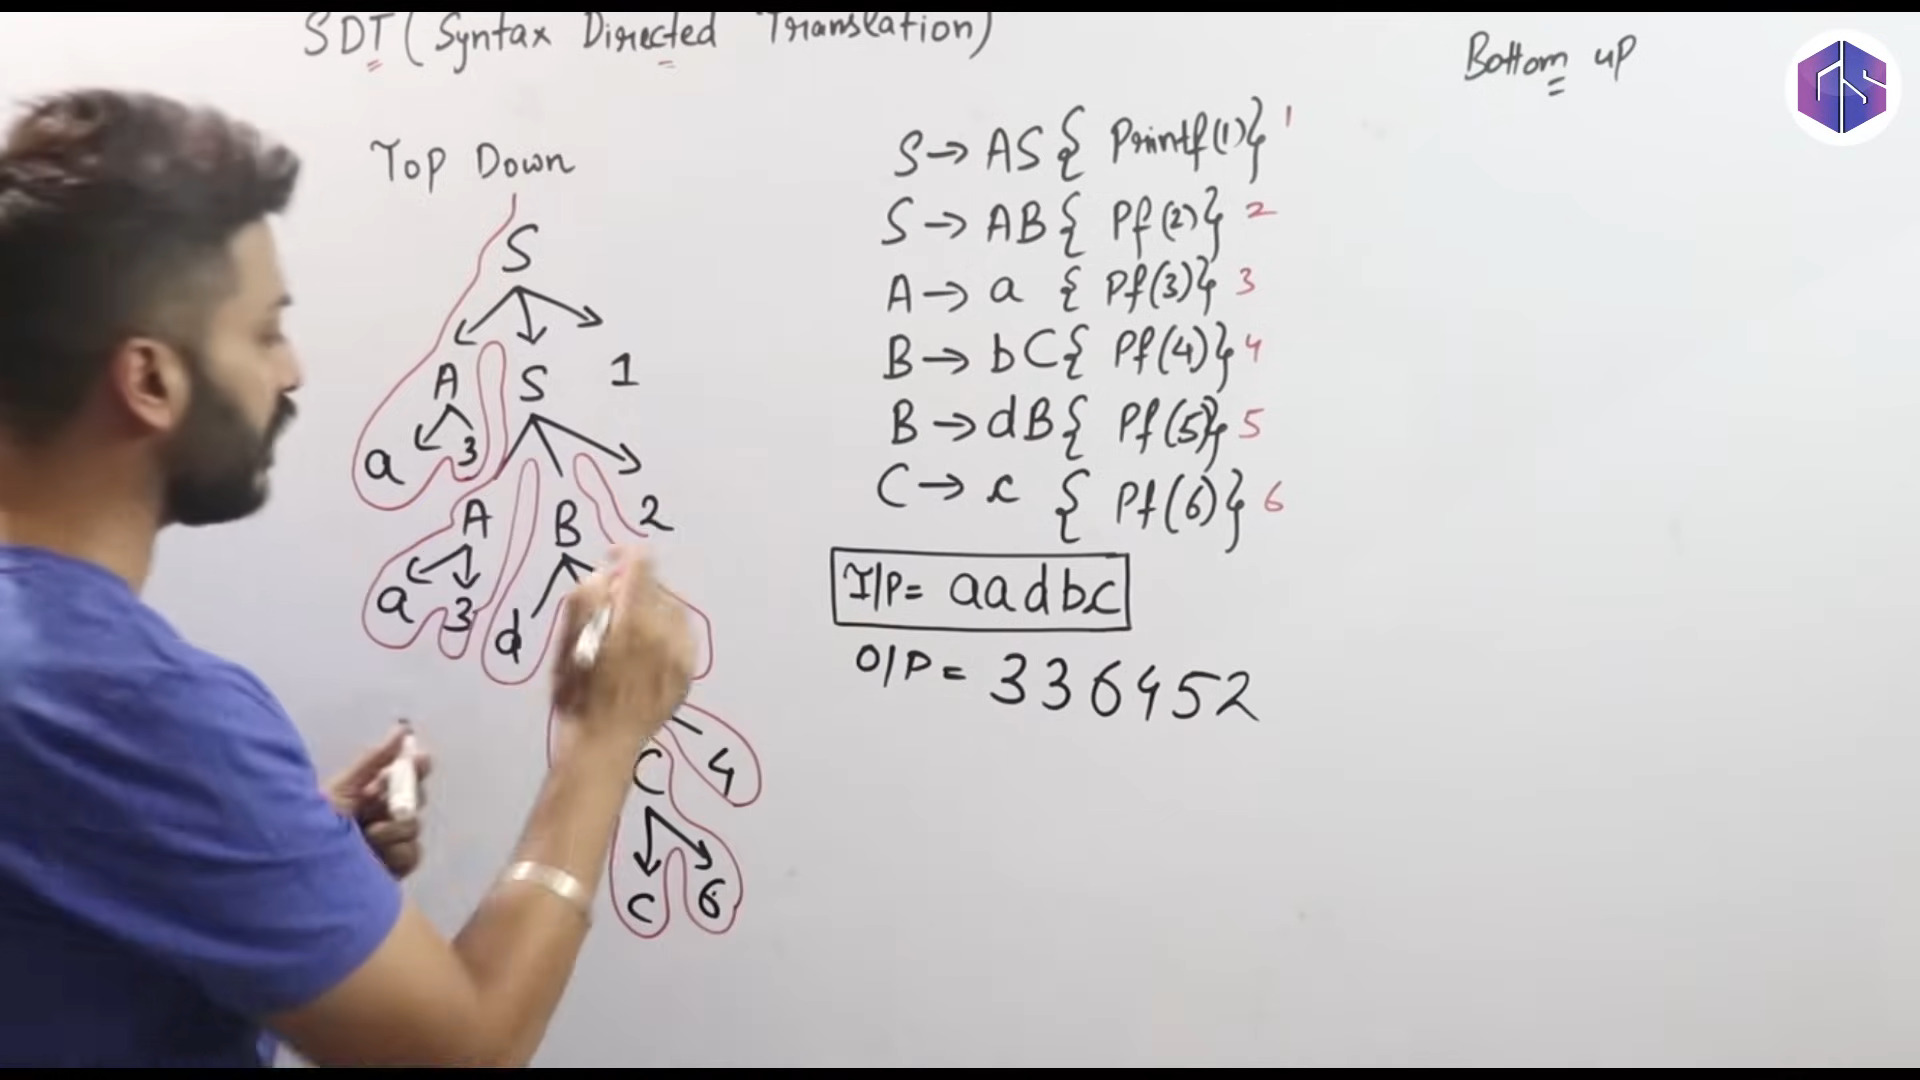 SDT (Syntax Directed Translation)
Bottom up
GS
Top Down
S
A S 1
a 3
A B 2
a 3 d
C 4
c 6
S → AS { Printf(1)} 1
S → AB { Pf(2)} 2
A → a { Pf(3)} 3
B → bC { Pf(4)} 4
B → dB { Pf(5)} 5
C → c { Pf(6)} 6
I/P = aadbc
O/P = 336452